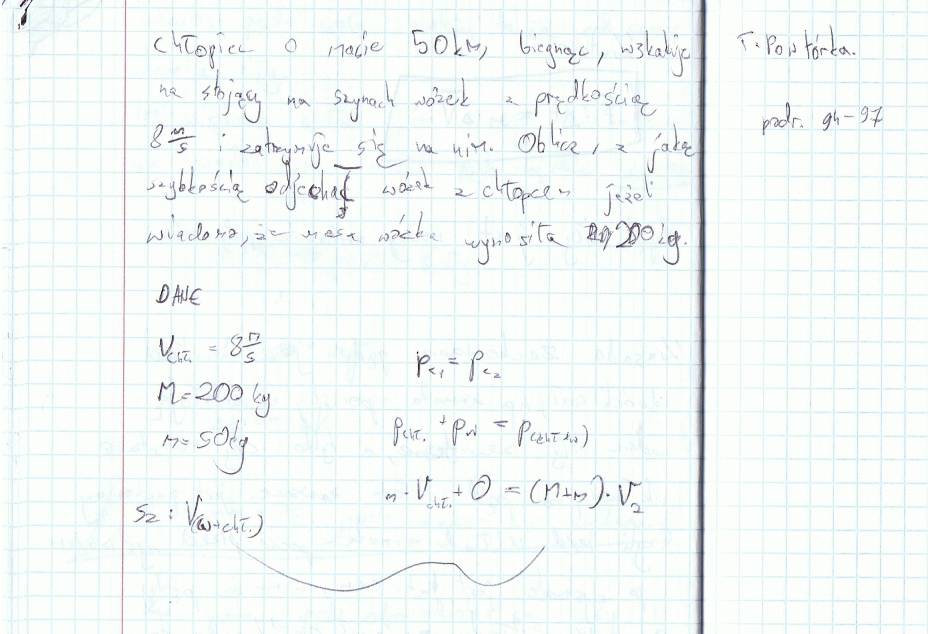 chłopiec o masie 50km, biegnąc, wskakuje
na stojący na szynach wózek z prędkością
8 m/s i zatrzymuje się na nim. Oblicz, z jaką
szybkością odjechał wózek z chłopcem jeżeli
wiadomo, że masa wózka wynosiła 200kg.
DANE
V_chł. = 8 m/s
M = 200 kg
m = 50kg
Sz : V(w+chł.)
p_c1 = p_c2
p_chł. + p_w = p_(chł+w)
m · V_chł. + 0 = (M+m) · V_2
T: Powtórka.
podr. 94-97